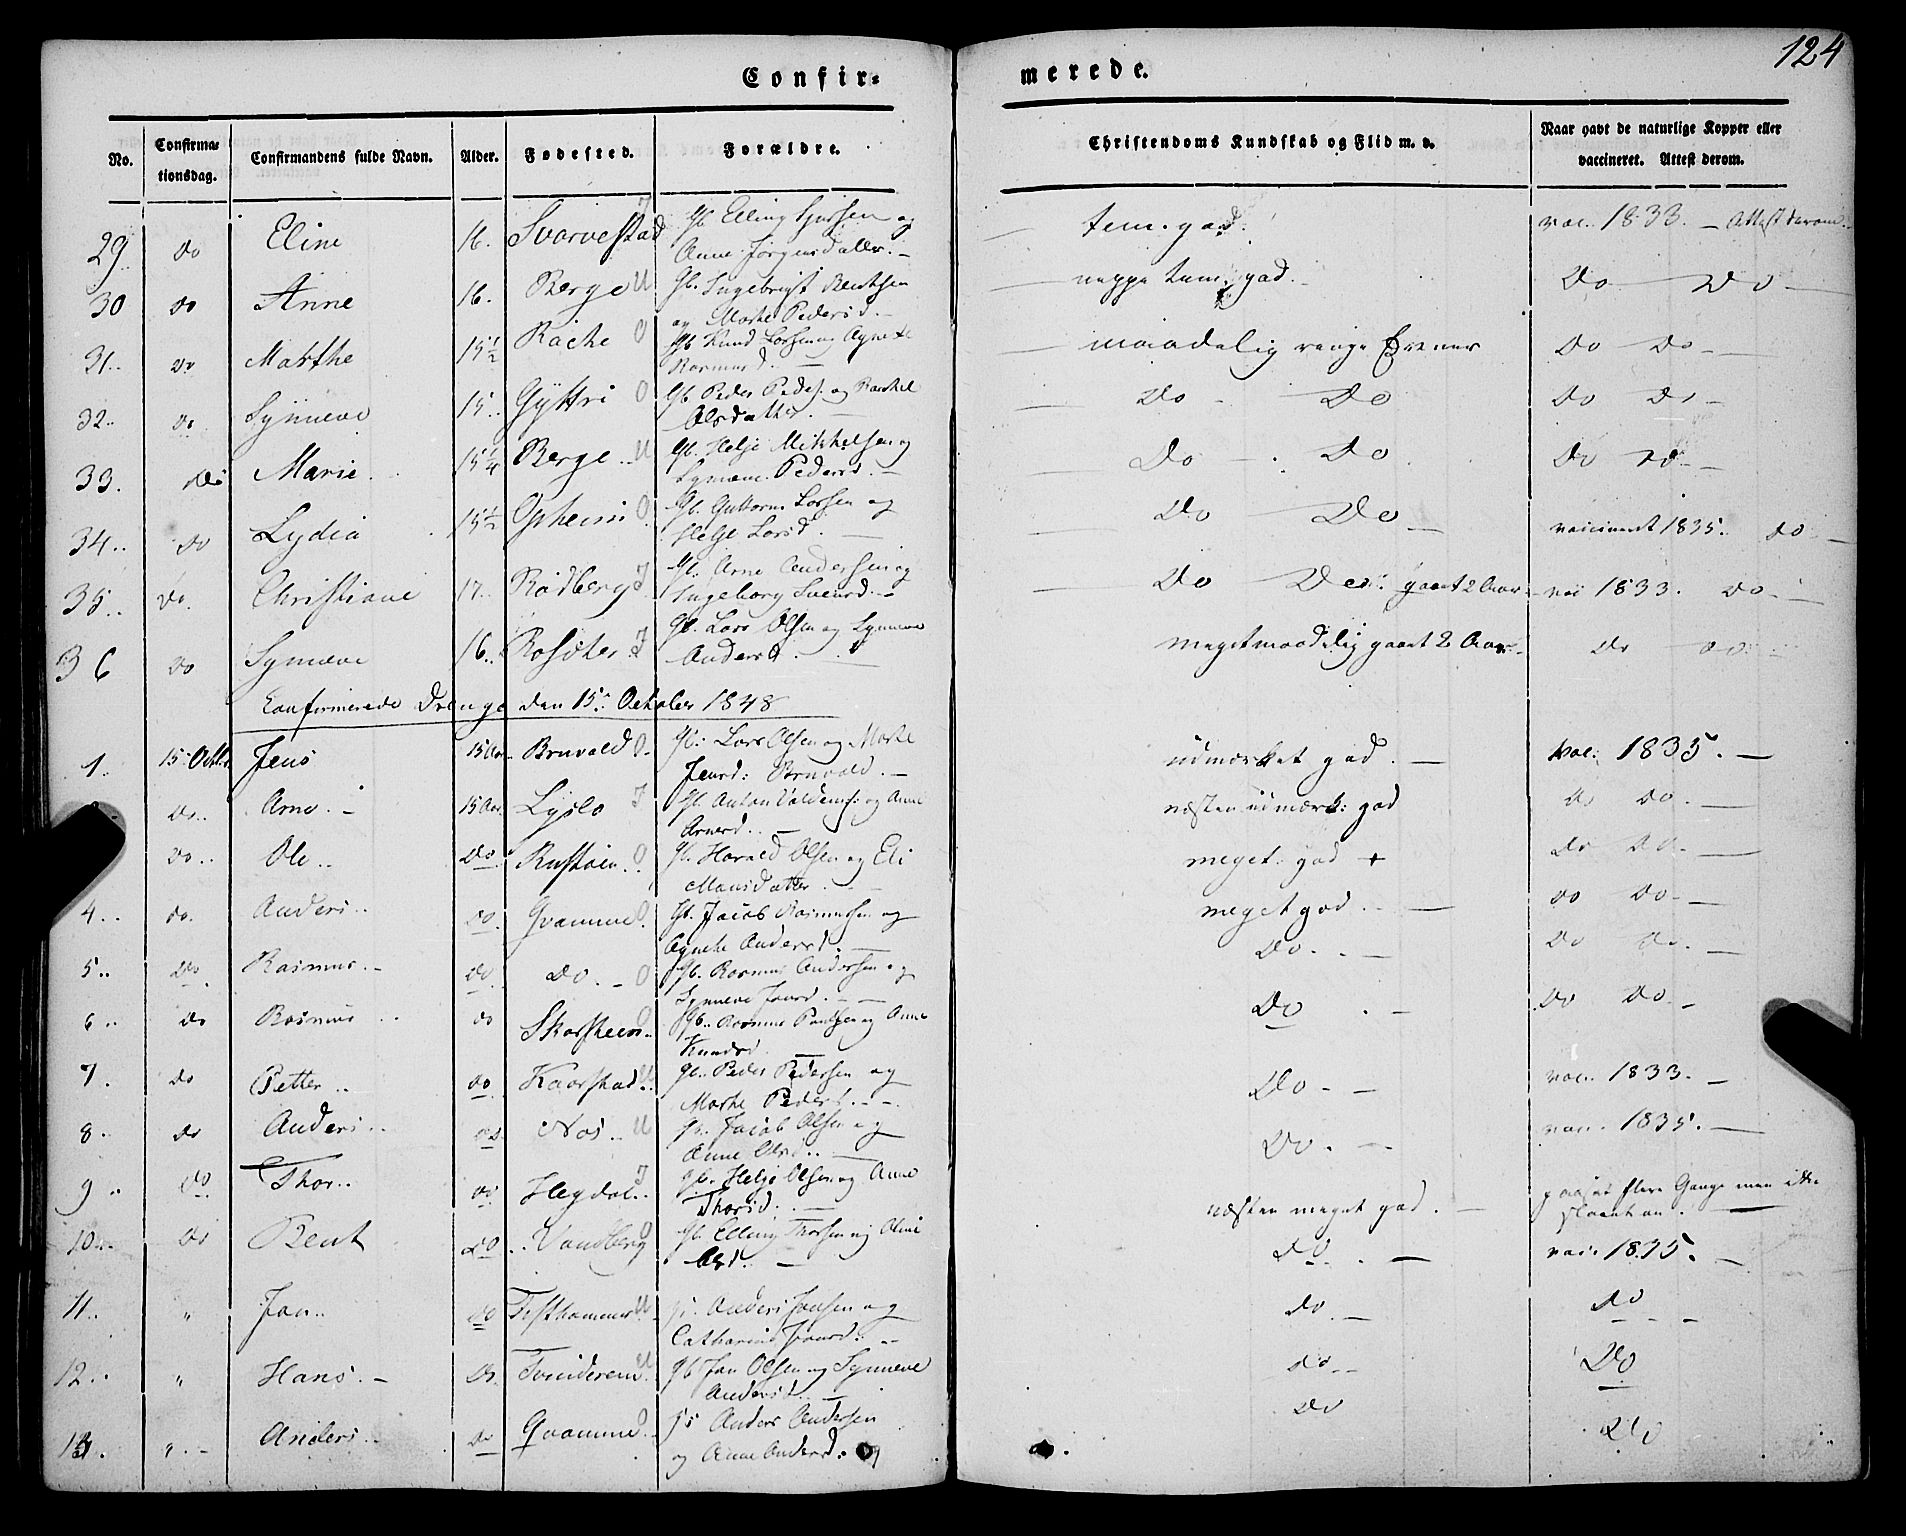 124
Confir-
merede.
No.
Confirma-
tionsdag.
Confirmandens fulde Navn.
Alder.
Fødested.
Forældre.
Christendoms Kundskab og Flid m. v.
Naar havt de naturlige Kopper eller
vaccineret. Attest derom.
29.. do Eline 16. Svarvestad Gb. Elling og tem. god. vac. 1833. — Attest derom.
Anne Jørgensdatter. —
30 do Anne 16. Berge U Gb. Ingebrigt Bentsen neppe tem. god. — Do Do —
og Marte Pedersd. —
31.. do Marthe 15½ O Gb. Knud Larsen og Agnete maadelig ringe Evner Do Do —
Rasmusd. —
32.. do Synneve 15.. Gyttri O Gb. Peder Peders. og Rachel Do — Do Do Do —
Olsdatter. —
33. do Marie. 15¼ Berge.. U Gb. Helje Mikkelsen og Do — . Do Do Do —
Synneve Pedersd. —
34.. do Lydia 15½ Opheim O. Gb. Guttorm Larsen og Do Do — vaccineret 1835. do. —
Helje Larsd. —
35.. do. Christiane 17.. Rødberg I Gb. Arne Andersen og Do Do: gaaet 2 Aar — vac 1833. do. —
Ingeborg
36 do Synneve 16.. I Gb. Lars Olsen og Synneve meget maadelig gaaet 2 Aar — Do do.
Andersd. —
Confirmerede Drenge den 15. October 1848
1. 15. Octb. Jens 15 Aar. Bruvold O. Gb. Lars Olsen og Marte udmærket god. — Vac: 1835. —
Jensd: Bruvold. —
do.. Arne. — 15 Aar. Lyslo I Gb. Anton og Anne næsten udmærk: god do do. —
Arnesd.. —
do.. Ole.. do Rustøen O. Gb. Harald Olsen og Eli meget: god + do do. —
Monsdatter. —
4.. do. Anders.. do. Qvamme O. Gb. Jacob Rasmussen og meget god. — do do. —
Agnete Andersd. —
5.. do Rasmus. — do. do. — O Gb. Rasmus Andersen og Do. . — do do. —
Synneve Jansd. —
6.. do Rasmus.. do Skarsheim.. Gb. Rasmus Paulsen og Anne Do . — Do do. —
Knudsd. —
7. do Petter.. do Kaarstad U Gb. Peder Pedersen og Do. — — vac. 1833. —
Marte Pedersd. —
8. do Anders.. do Nos.. U Gb. Jacob Olsen og Do. — vac. 1835. —
Anne Olsd.. —
9.. do Thor.. do Hegdal.. I Gb. Helje Olsen og Anne næsten meget god. — flere Gange men ikke
Thorsd. —
10.. do Bent do Vandberg O Gb. Elling Thorsen og Do. . — vac. 1835. —
Olsd. —
11.. " Jan.. do Tisthammer U Anders Jansen og do. — do
Catharine Jansd. —
12.. " Hans. — do. Tvinderem U Gb. Jan Olsen og Synneve do. — Do
Andersd. —
13. ". — Anders. — do Qvamme O Anders Andersen Do Do
og Anne Andersd.